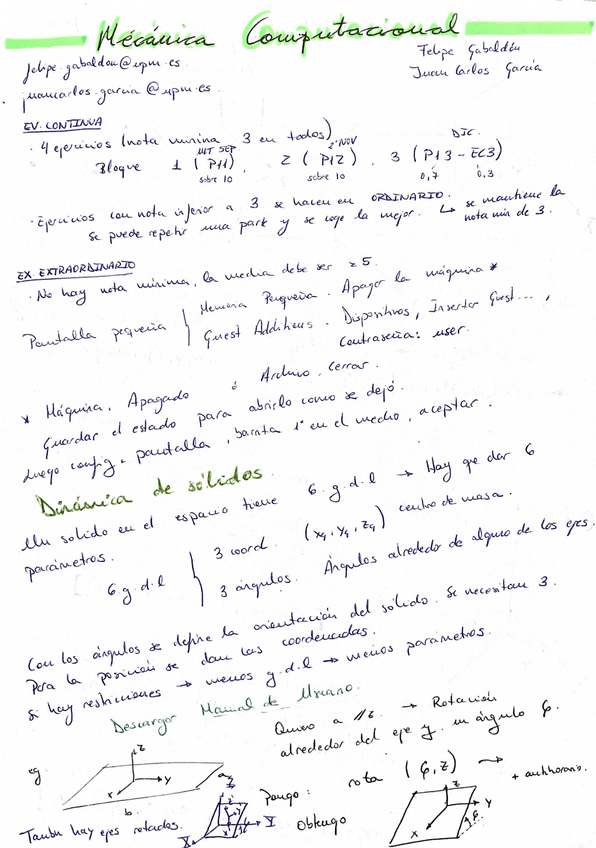 Mecánica Computacional
felipe.gabaldon@upm.es
Felipe Gabaldón
juancarlos.garcia@upm.es
Juan Carlos García
EV. CONTINUA
· 4 ejercicios (nota minima 3 en todos)
INT SEP 2ª NOV DIC.
Bloque 1 (P11), 2 (P12), 3 (P13 - EC3)
sobre 10 sobre 10 0,7 0.3
· Ejercicios con nota inferior a 3 se hacen en ORDINARIO.
Se puede repetir una parte y se coge la mejor. ↳ se mantiene la nota min de 3.
EX. EXTRAORDINARIO
· No hay nota mínima, la media debe ser ≥ 5.
Pantalla pequeña
Memoria Pequeña. Apagar la máquina *
Guest Additions. Dispositivos, Insertar Guest...,
Contraseña: user.
* Máquina, Apagado ó Archivo, cerrar.
Guardar el estado para abrirlo como se dejó.
Luego config, pantalla, barrita 1º en el medio, aceptar.
Dinámica de sólidos.
Un solido en el espacio tiene 6.g.d.l → Hay que dar 6
parámetros.
6.g.d.l
3 coord. (xg, yg, zg) centro de masa.
3 ángulos. Ángulos alrededor de alguno de los ejes.
Con los ángulos se define la orientación del sólido. Se necesitan 3.
Para la posición se dan las coordenadas.
Si hay restricciones → menos g.d.l → menos parámetros.
Descargar Manual de Usuario.
Quiero a // z. → Rotación
alrededor del eje y. un ángulo
eg
z
y
x
a
b
Pongo: rota ( , z) →
+ antihorario.
Tambn hay ejes rotados.
Obtengo
z
y
x